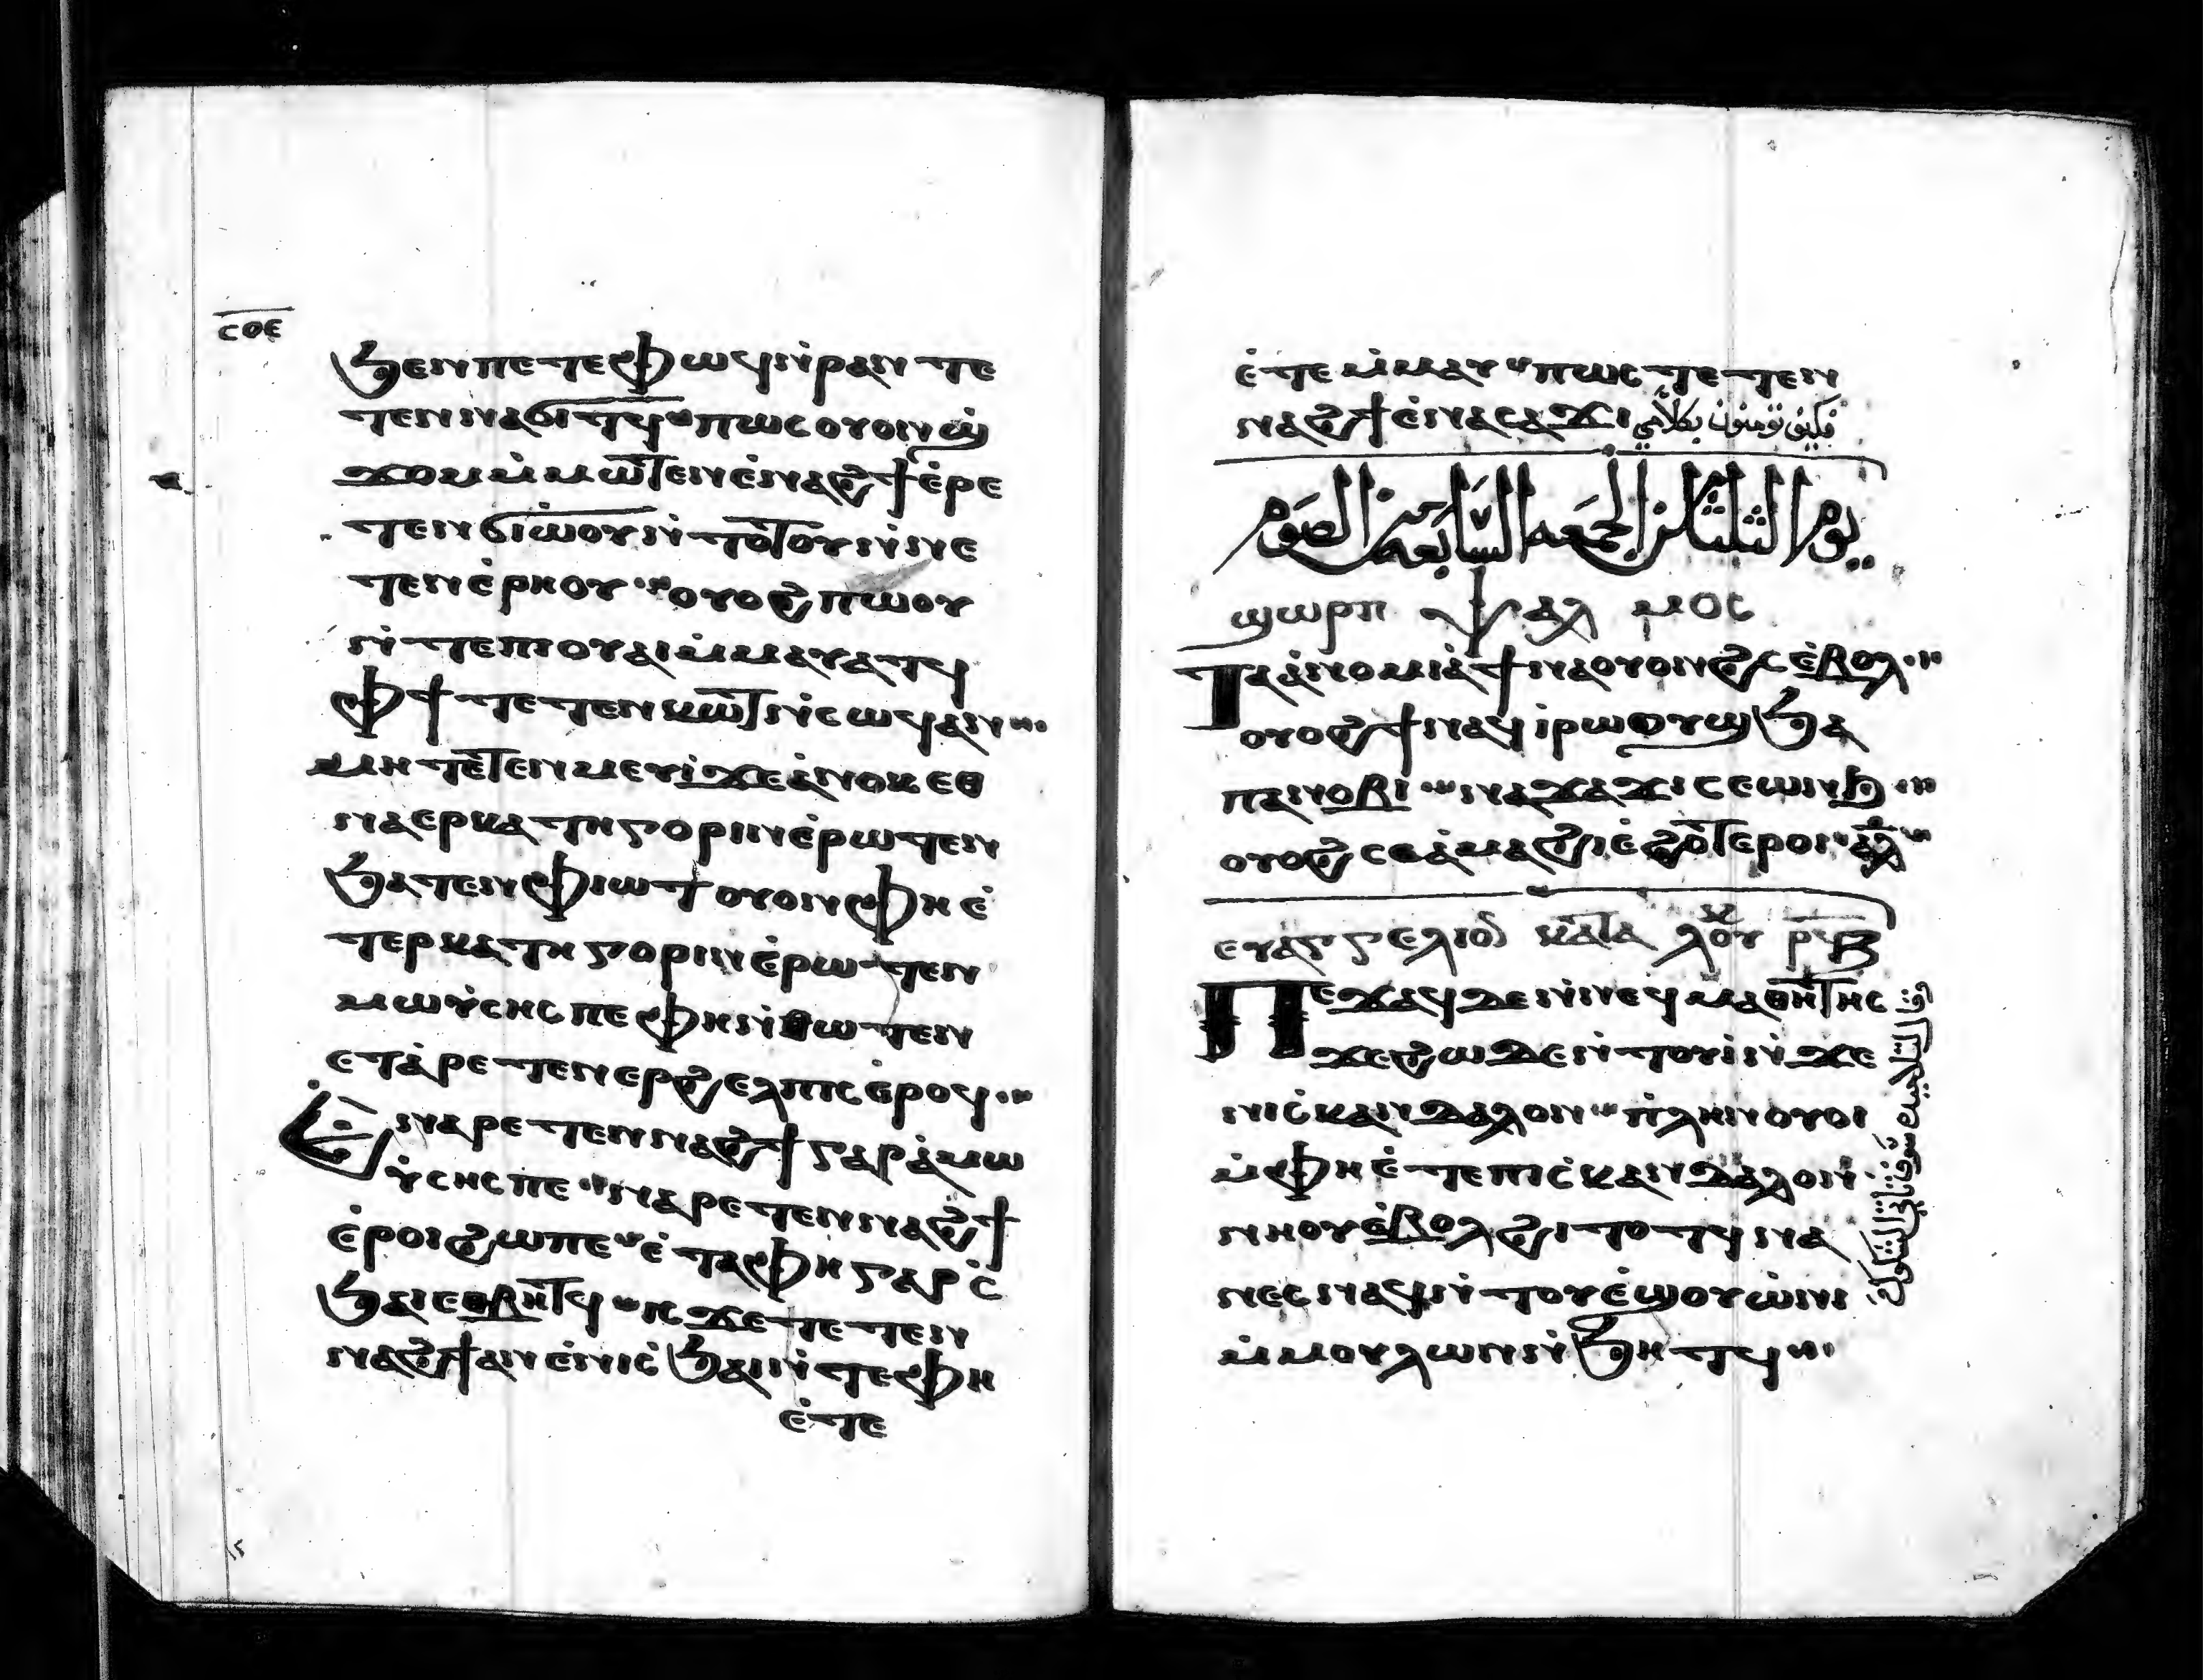 ⲥⲟⲉ
ϧⲉⲛⲡⲉⲧⲉⲫⲱϥⲛ̀ⲣⲁⲛⲧⲉ
ⲧⲉⲛⲛⲁϭⲓⲧϥ ⲡⲱⲥⲟⲩⲟⲛϣ̀
ϫⲟⲙⲙ̀ⲙⲱⲧⲉⲛⲉ̀ⲛⲁϩϯⲉ̀ⲣⲉ
ⲧⲉⲛϭⲓⲱ̀ⲟⲩⲛ̀ⲧⲟⲧⲟⲩⲛ̀ⲛⲉ
ⲧⲉⲛⲉ̀ⲣⲏⲟⲩ ⲟⲩⲟϩⲡⲱⲟⲩ
ⲛ̀ⲧⲉⲡⲓⲟⲩⲁⲓⲙ̀ⲙⲁⲩⲁⲧϥ
ⲫϯⲧⲉⲧⲉⲛⲕⲱⲧⲛ̀ⲥⲱϥⲁⲛ
ⲙⲏⲧⲉⲧⲉⲛⲙⲉⲩⲓ̀ϫⲉⲁ̀ⲛⲟⲕⲉⲑ
ⲛⲁⲉⲣⲕⲁⲧⲏⲅⲟⲣⲓⲛⲉ̀ⲣⲱⲧⲉⲛ
ϧⲁⲧⲉⲛⲫⲓⲱⲧⲟⲩⲟⲛⲫⲏⲉ̀
ⲧⲉⲣⲕⲁⲧⲏⲅⲟⲣⲓⲛⲉ̀ⲣⲱⲧⲉⲛ
ⲙⲱⲩ̀ⲥⲏⲥⲡⲉⲫⲏⲛ̀ⲑⲱⲧⲉⲛ
ⲉⲧⲁ̀ⲣⲉⲧⲉⲛⲉⲣϩⲉⲗⲡⲓⲥⲉ̀ⲣⲟϥ
Ⲉ̀ⲛⲁⲣⲉⲧⲉⲛⲛⲁϩϯⲅⲁⲣⲁ̀ⲙⲱ
ⲩ̀ⲥⲏⲥⲡⲉ ⲛⲁⲣⲉⲧⲉⲛⲛⲁϩϯ
ⲉ̀ⲣⲟⲓϩⲱⲡⲉ ⲉ̀ⲧⲁⲫⲏⲅⲁⲣⲥ̀
ϧⲁⲓⲉⲑⲃⲏⲧϥ ⲓⲥϫⲉⲧⲉⲧⲉⲛ
ⲛⲁϩϯⲁⲛⲉ̀ⲛⲓⲥ̀ϧⲁⲓⲛ̀ⲧⲉⲫⲏ
ⲉ̀ⲧⲉ
ⲉ̀ⲧⲉⲙ̀ⲙⲁⲩ ⲡⲱⲥⲧⲉⲧⲉⲛ
ⲛⲁϩϯⲉ̀ⲛⲁⲥⲁϫⲓ فكيف تومنون بكلامي
يوم الثلثا من الجمعه السابعه من الصوم
ϣⲱⲣⲡ ⲯⲁⲗⲙⲟⲥ
Ⲧⲁⲁ̀ⲛⲟⲙⲓⲁ̀ϯⲛⲁⲟⲩⲟⲛϩⲥⲉ̀ⲃⲟⲗ
ⲟⲩⲟϩϯⲛⲁϥⲓ̀ⲣⲱⲟⲩϣϧⲁ
ⲡⲁⲛⲟⲃⲓ ⲛⲁϫⲁϫⲓⲥⲉⲱⲛϧ
ⲟⲩⲟϩⲥⲉⲁ̀ⲙⲁϩⲓⲉ̀ϩⲟⲧⲉⲣⲟⲓ ⲁⲗ
ⲉⲩⲁⲅⲅⲉⲗⲓⲟⲛ ⲕⲁⲧⲁ ⲗⲟⲩ ⲣⲩⲃ
Ⲡⲉϫⲁϥⲇⲉⲛ̀ⲛⲉϥⲙⲁⲑⲏⲧⲏⲥ
ϫⲉϩⲱⲇⲉⲛ̀ⲧⲟⲩⲓ̀ⲛ̀ϫⲉ
ⲛⲓⲥ̀ⲕⲁⲛⲇⲁⲗⲟⲛ ⲡ̀ⲗⲏⲛⲟⲩⲟⲓ
ⲙ̀ⲫⲏⲉ̀ⲧⲉⲡⲓⲥ̀ⲕⲁⲛⲇⲁⲗⲟⲛ
ⲛⲏⲟⲩⲉ̀ⲃⲟⲗϩⲓⲧⲟⲧϥⲛⲁ
ⲛⲉⲥⲛⲁϥⲛ̀ⲧⲟⲩⲉ̀ϣⲟⲩⲱ̀ⲛⲓ
ⲙ̀ⲙⲟⲩⲗⲱⲛⲛ̀ϧⲏⲧϥ
قال لتلاميذه سوف تاتي الشكوك